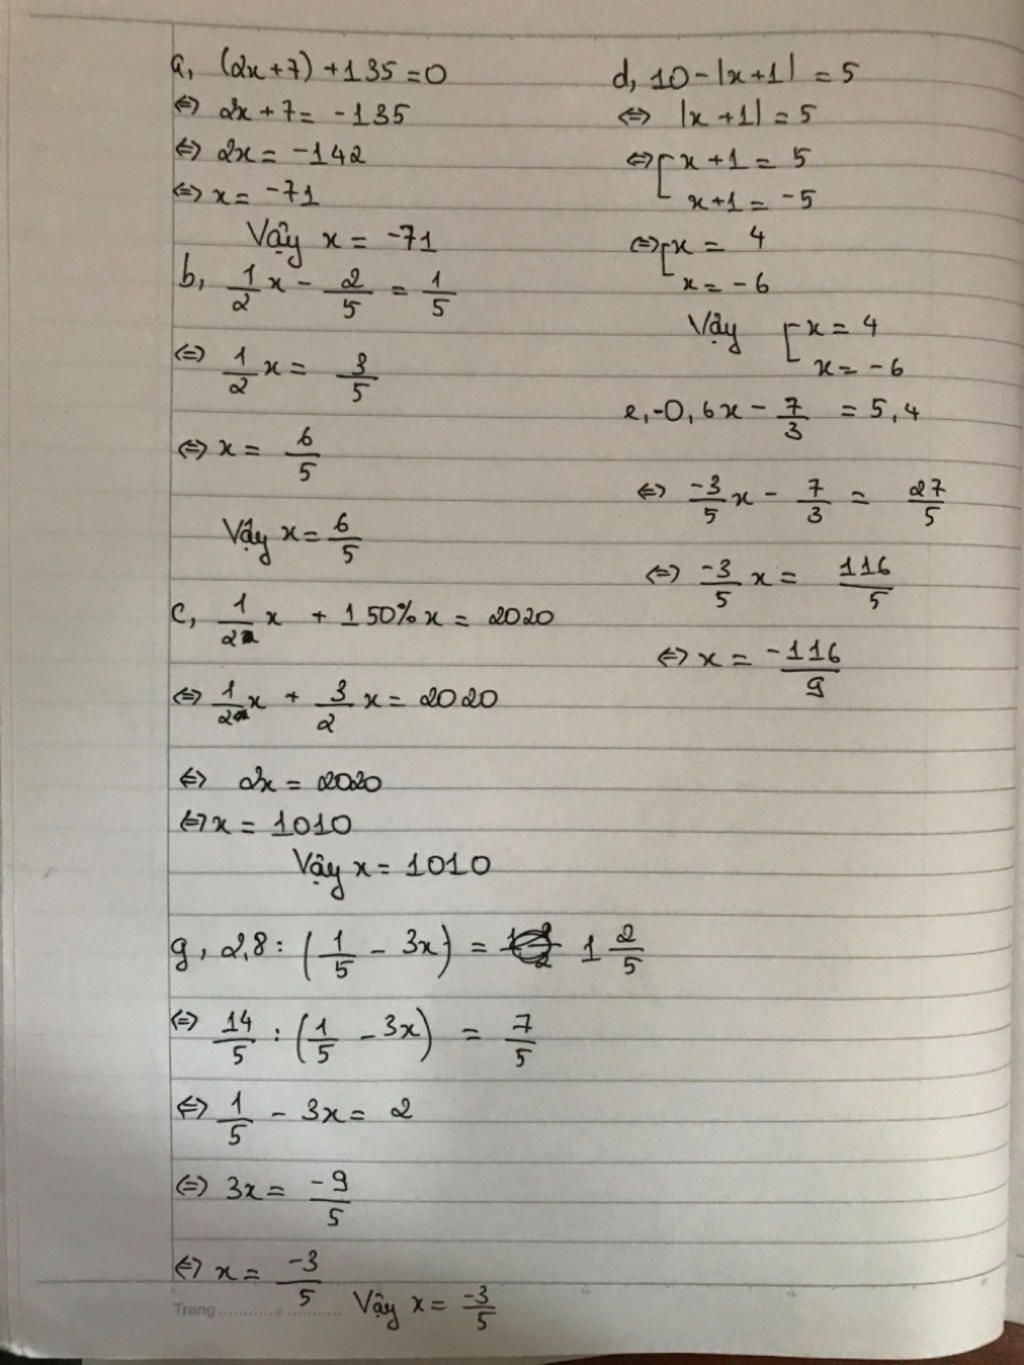 a, (2x+7)+135=0
⇔ 2x+7= -135
⇔ 2x= -142
⇔ x= -71
Vậy x = -71
b, 1/2 x - 2/5 = 1/5
⇔ 1/2 x = 3/5
⇔ x = 6/5
Vậy x = 6/5
c, 1/2 x + 150% x = 2020
⇔ 1/2 x + 3/2 x = 2020
⇔ 2x = 2020
⇔ x = 1010
Vậy x = 1010
g, 2,8 : (1/5 - 3x) = 1 2/5
⇔ 14/5 : (1/5 - 3x) = 7/5
⇔ 1/5 - 3x = 2
⇔ 3x = -9/5
⇔ x = -3/5 Vậy x = -3/5
Trang
d, 10-|x+1| = 5
⇔ |x+1| = 5
⇔ [ x+1 = 5
x+1 = -5
⇔ [ x = 4
x = -6
Vậy [ x = 4
x = -6
e, -0,6x - 7/3 = 5,4
⇔ -3/5 x - 7/3 = 27/5
⇔ -3/5 x = 116/5
⇔ x = -116/9